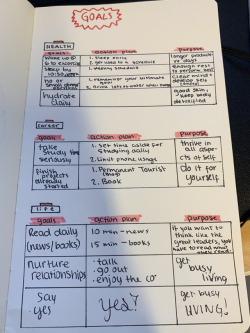 GOALS
HEALTH
goals action plan purpose
wake up @
6 to exercise
1. sleep early
2. get used to a schedule
longer productive
days
sleep by
10:30
1. weekly schedule
enough rest
to
no or
1. remember your ultimate
goal
clear mind +
develop self
control
hydrate
daily
2. drink lots of water
good skin,
keep body
detoxified
career
goals action plan purpose
take
study time
seriously
1. set time aside for
studying daily
2. limit phone usage
thrive in
all aspects
of self
finish
projects
already
started
1. Permanent Tourist
2. Book
do it for
yourself
life
goals action plan purpose
Read daily
(news/books)
10 min - news
15 min - books
If you want to
think like the
great leaders, you
have to read what
nurture
relationships
· talk
· go out
· enjoy the co
get
busy
living
say
yes
yes?
get busy
LIVING!